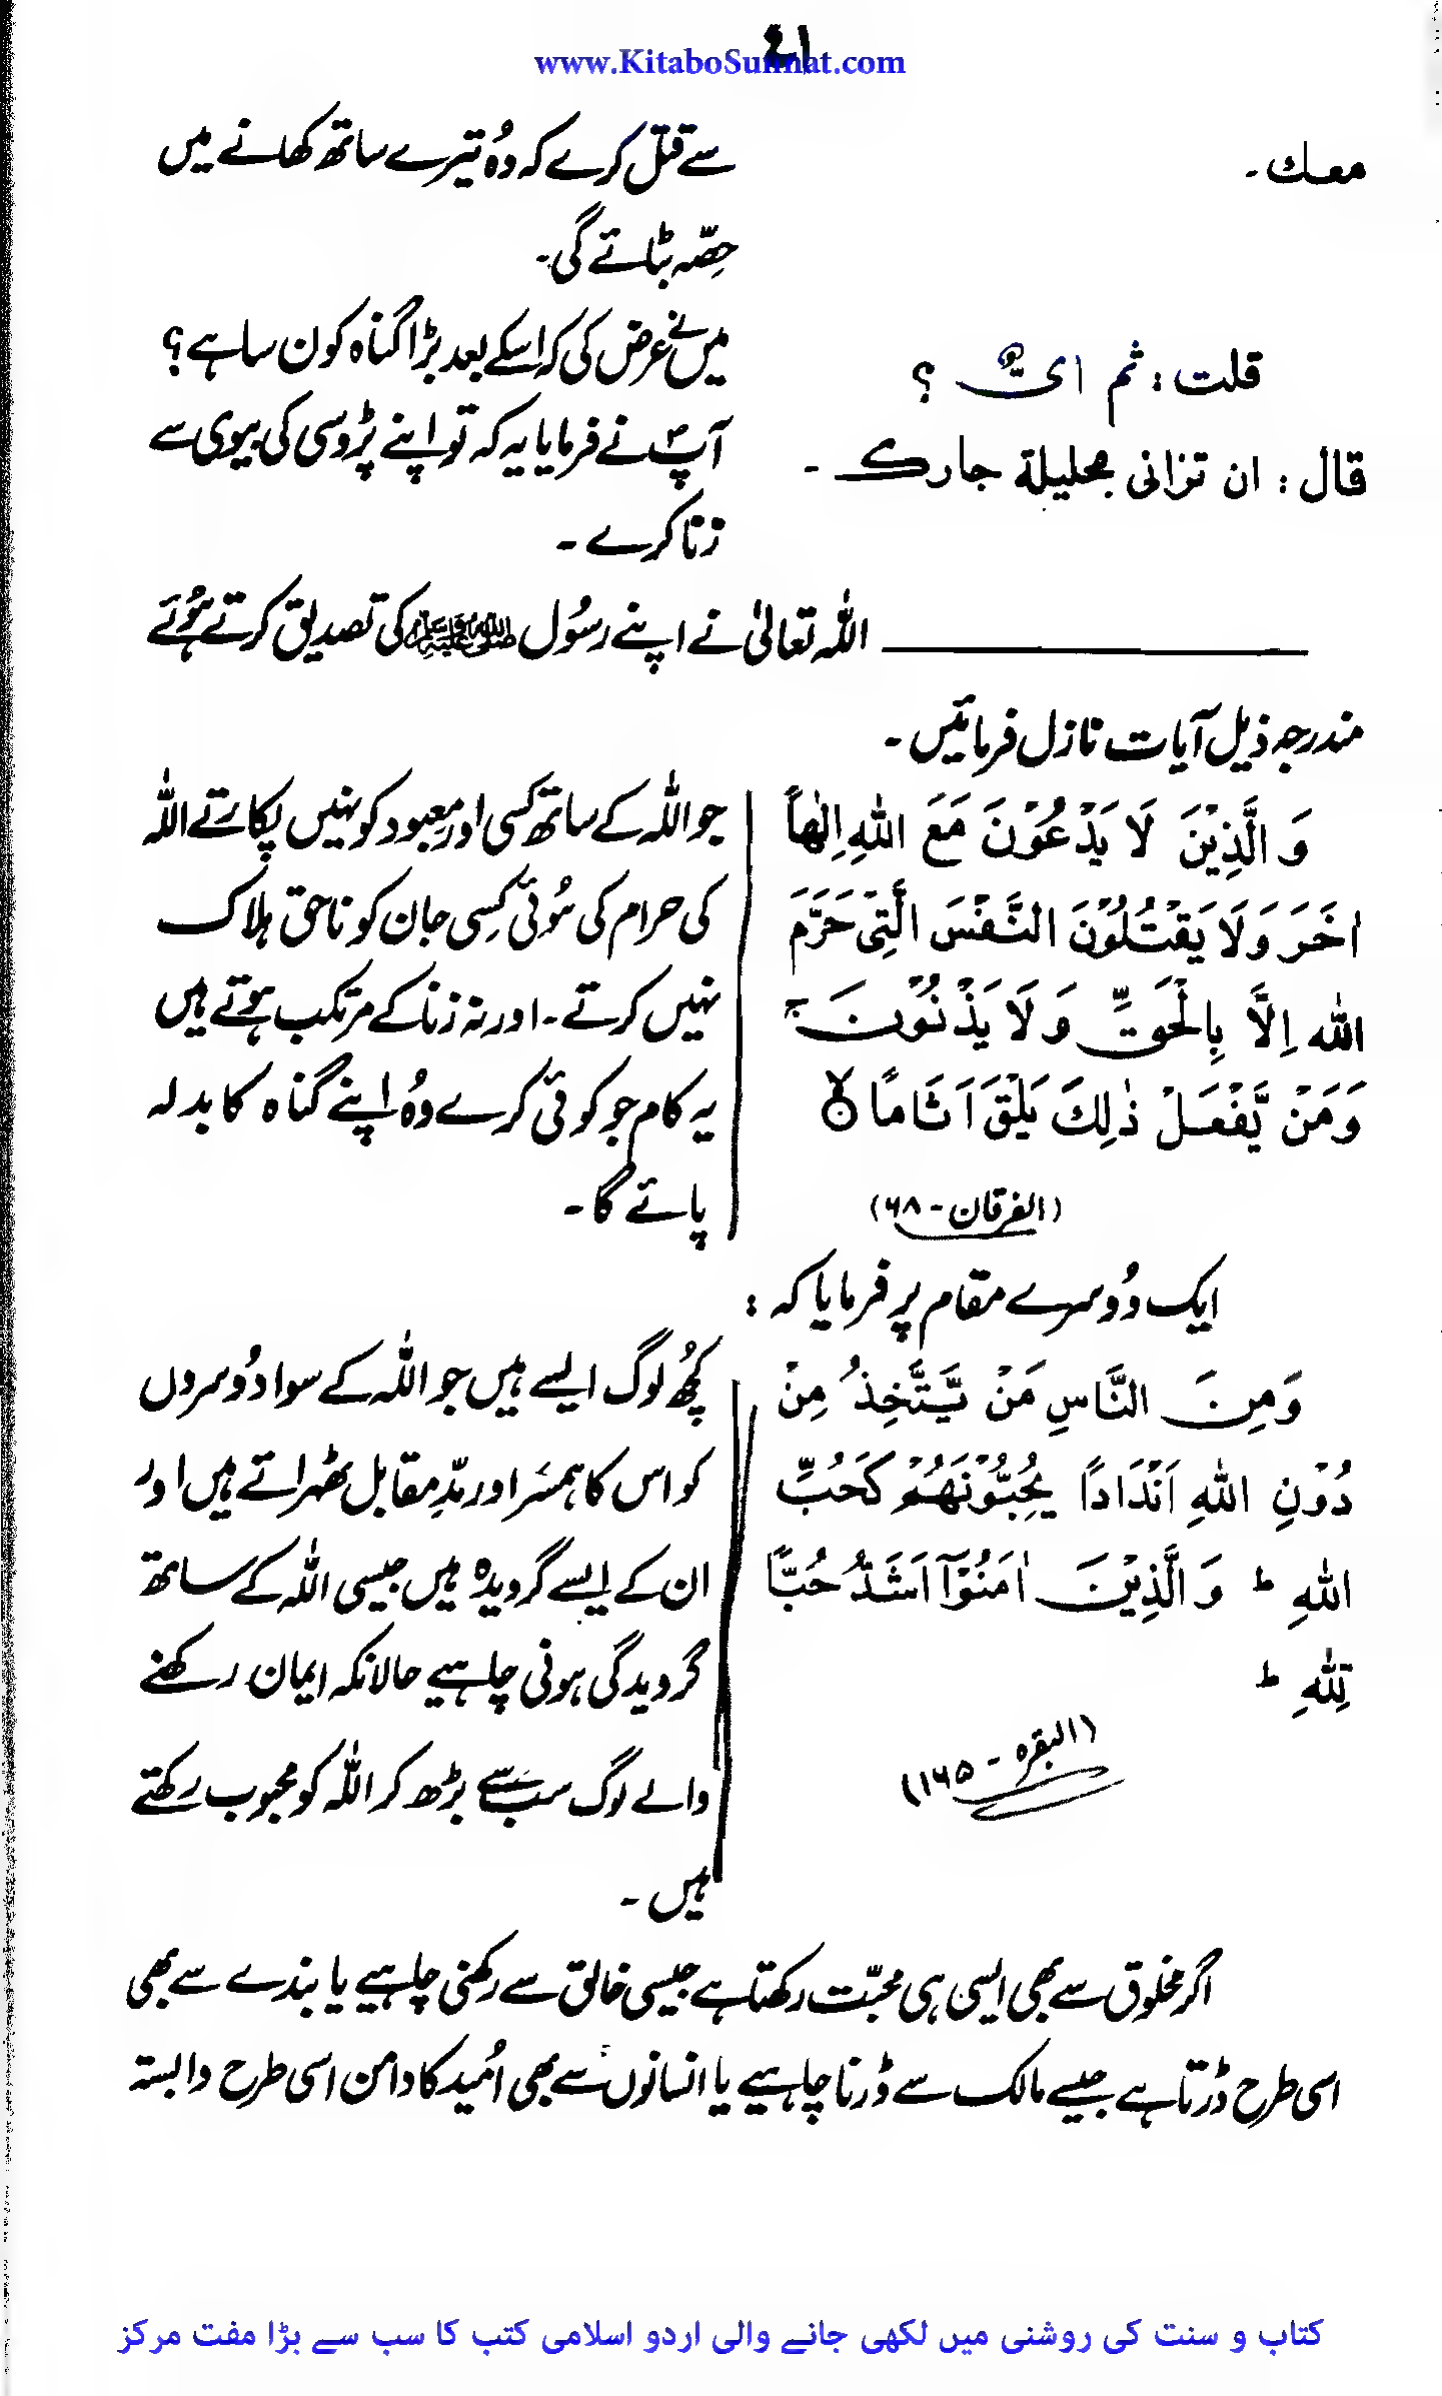 ۲۱
www.KitaboSunnat.com
معك ۔
سے قتل کرے کہ وُہ تیرے ساتھ کھانے میں
حِصّہ بٹائے گی۔
قلت : ثم ایٌّ ؟
میں نے عرض کی کہ اسکے بعد بڑا گناہ کون سا ہے ؟
قال : ان تزانی بحلیلة جارك ۔
آپؐ نے فرمایا یہ کہ تو اپنے پڑوسی کی بیوی سے
زنا کرے ۔
اللہ تعالیٰ نے اپنے رسُول ﷺ کی تصدیق کرتے ہُوئے
مندرجہ ذیل آیات نازل فرمائیں ۔
وَ الَّذِیْنَ لَا یَدْعُوْنَ مَعَ اللهِ اِلٰهاً
اٰخَرَ وَلَا یَقْتُلُوْنَ النَّفْسَ الَّتِیْ حَرَّمَ
الله اِلَّا بِالْحَقِّ وَ لَا یَذْنُوْنَ ۚ
وَمَنْ یَّفْعَلْ ذٰلِكَ یَلْقَ اَثَامًا ۙ
(الفرقان - ۶۸)
جو اللہ کے ساتھ کسی اور معبود کو نہیں پکارتے اللہ
کی حرام کی ہُوئی کِسی جان کو ناحق ہلاک
نہیں کرتے ۔ اور نہ زنا کے مرتکب ہوتے ہیں
یہ کام جو کوئی کرے وُہ اپنے گناہ کا بدلہ
پائے گا ۔
ایک دُوسرے مقام پر فرمایا کہ :
وَمِنَ النَّاسِ مَنْ یَّتَّخِذُ مِنْ
دُوْنِ اللهِ اَنْدَادًا یُحِبُّوْنَهُمْ کَحُبِّ
اللهِ ط وَ الَّذِیْنَ اٰمَنُوْۤا اَشَدُّ حُبًّا
لِلّٰهِ ط
(البقرہ - ۱۶۵)
کچُھ لوگ ایسے ہیں جو اللہ کے سوا دُوسروں
کو اس کا ہمسَر اور مدِّ مقابل ٹھہراتے ہیں اور
ان کے ایسے گرویدہ ہیں جیسی اللہ کے ساتھ
گرویدگی ہونی چاہیے حالانکہ ایمان رکھنے
والے لوگ سب سے بڑھ کر اللہ کو محبوب رکھتے
ہیں ۔
اگر مخلوق سے بھی ایسی ہی محبّت رکھتا ہے جیسی خالق سے رکھنی چاہیے یا بندے سے بھی
اسی طرح ڈرتا ہے جیسے مالک سے ڈرنا چاہیے یا انسانوں سے بھی اُمید کا دامن اسی طرح وابستہ
کتاب و سنت کی روشنی میں لکھی جانے والی اردو اسلامی کتب کا سب سے بڑا مفت مرکز